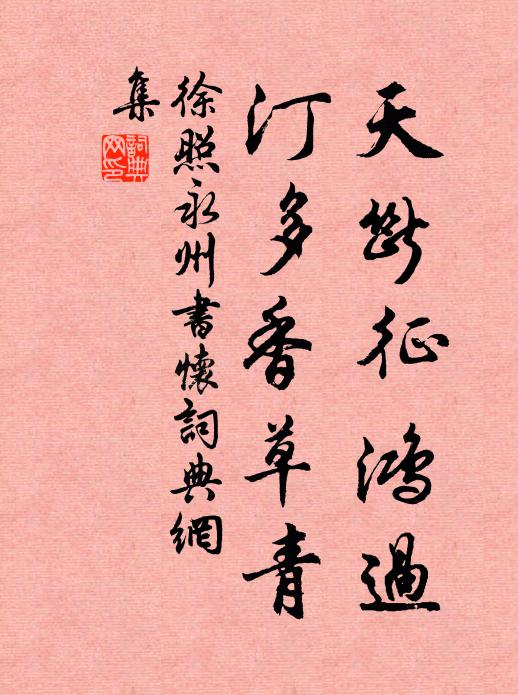 天断征鸿過
汀多香草青
徐照永州書懷詞典網
集
詞典
网印